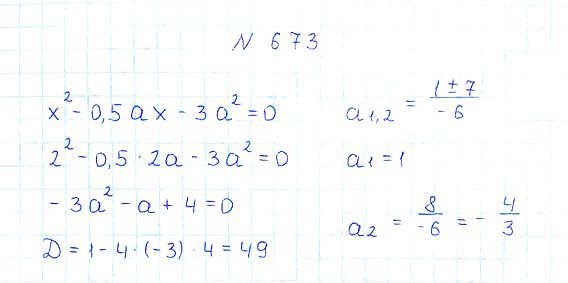 N 673
x² - 0,5ax - 3a² = 0
2² - 0,5 · 2a - 3a² = 0
- 3a² - a + 4 = 0
D = 1 - 4 · (-3) · 4 = 49
a₁,₂ = (1 ± 7)/(-6)
a₁ = 1
a₂ = 8/(-6) = - 4/3